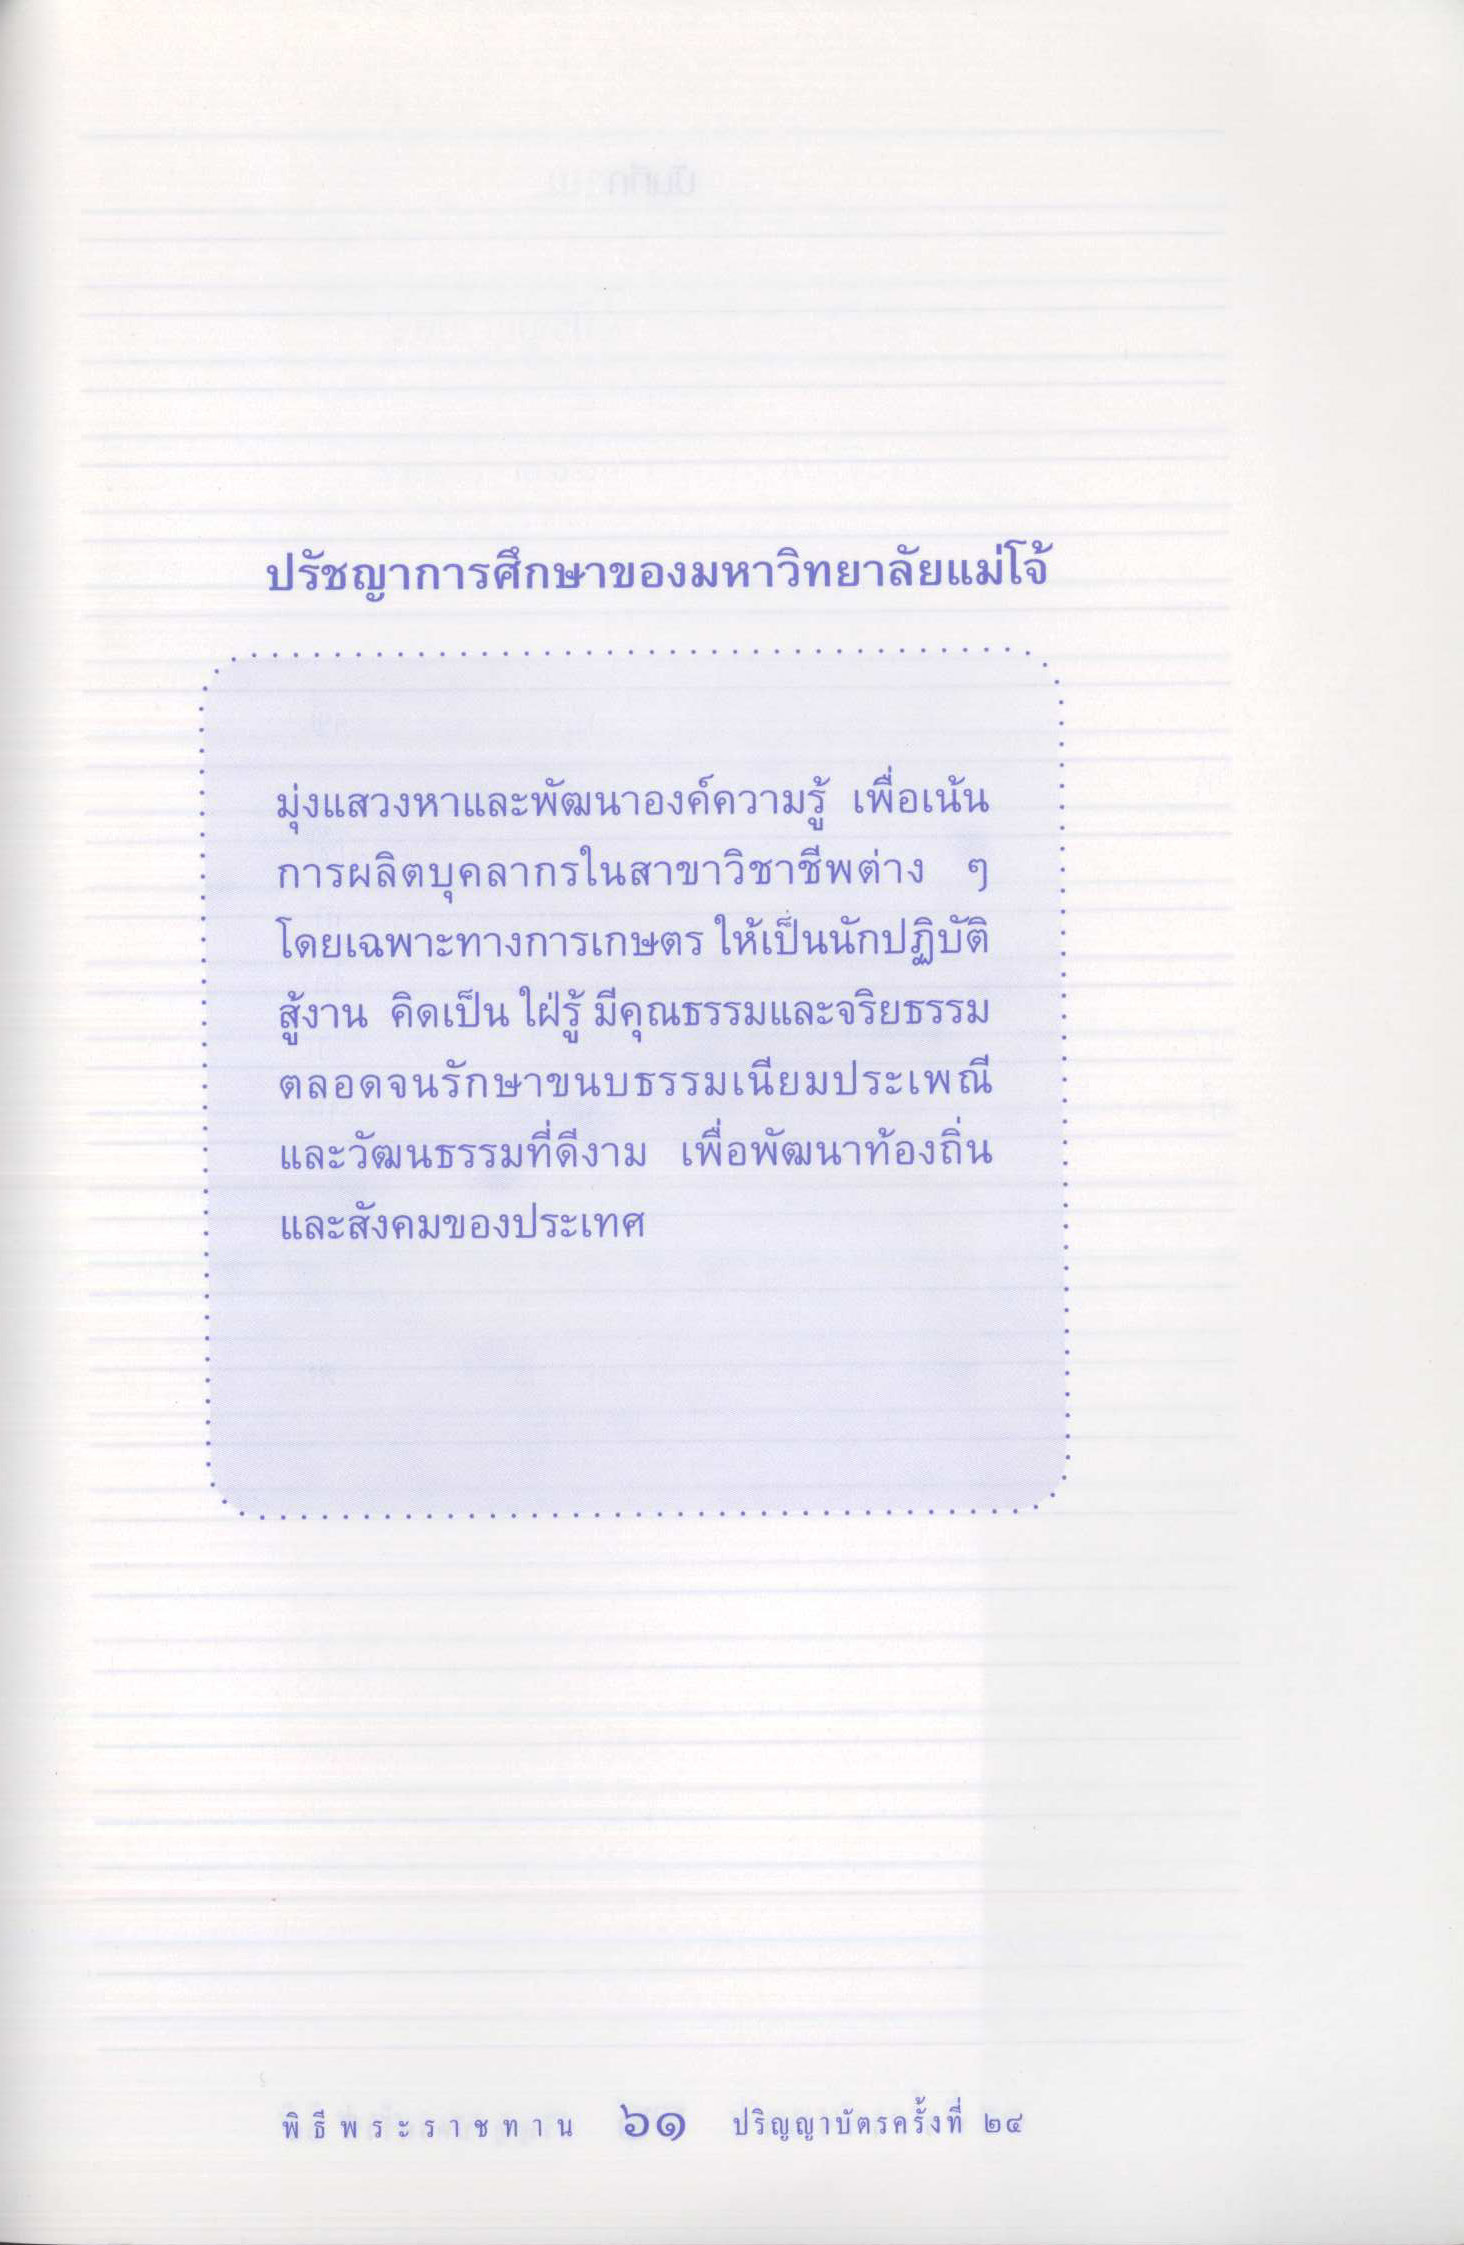 ปรัชญาการศึกษาของมหาวิทยาลัยแม่โจ้
มุ่งแสวงหาและพัฒนาองค์ความรู้ เพื่อเน้น
การผลิตบุคลากรในสาขาวิชาชีพต่าง ๆ
โดยเฉพาะทางการเกษตร ให้เป็นนักปฏิบัติ
สู้งาน คิดเป็น ใฝ่รู้ มีคุณธรรมและจริยธรรม
ตลอดจนรักษาขนบธรรมเนียมประเพณี
และวัฒนธรรมที่ดีงาม เพื่อพัฒนาท้องถิ่น
และสังคมของประเทศ
พิธีพระราชทาน ๖๑ ปริญญาบัตรครั้งที่ ๒๔